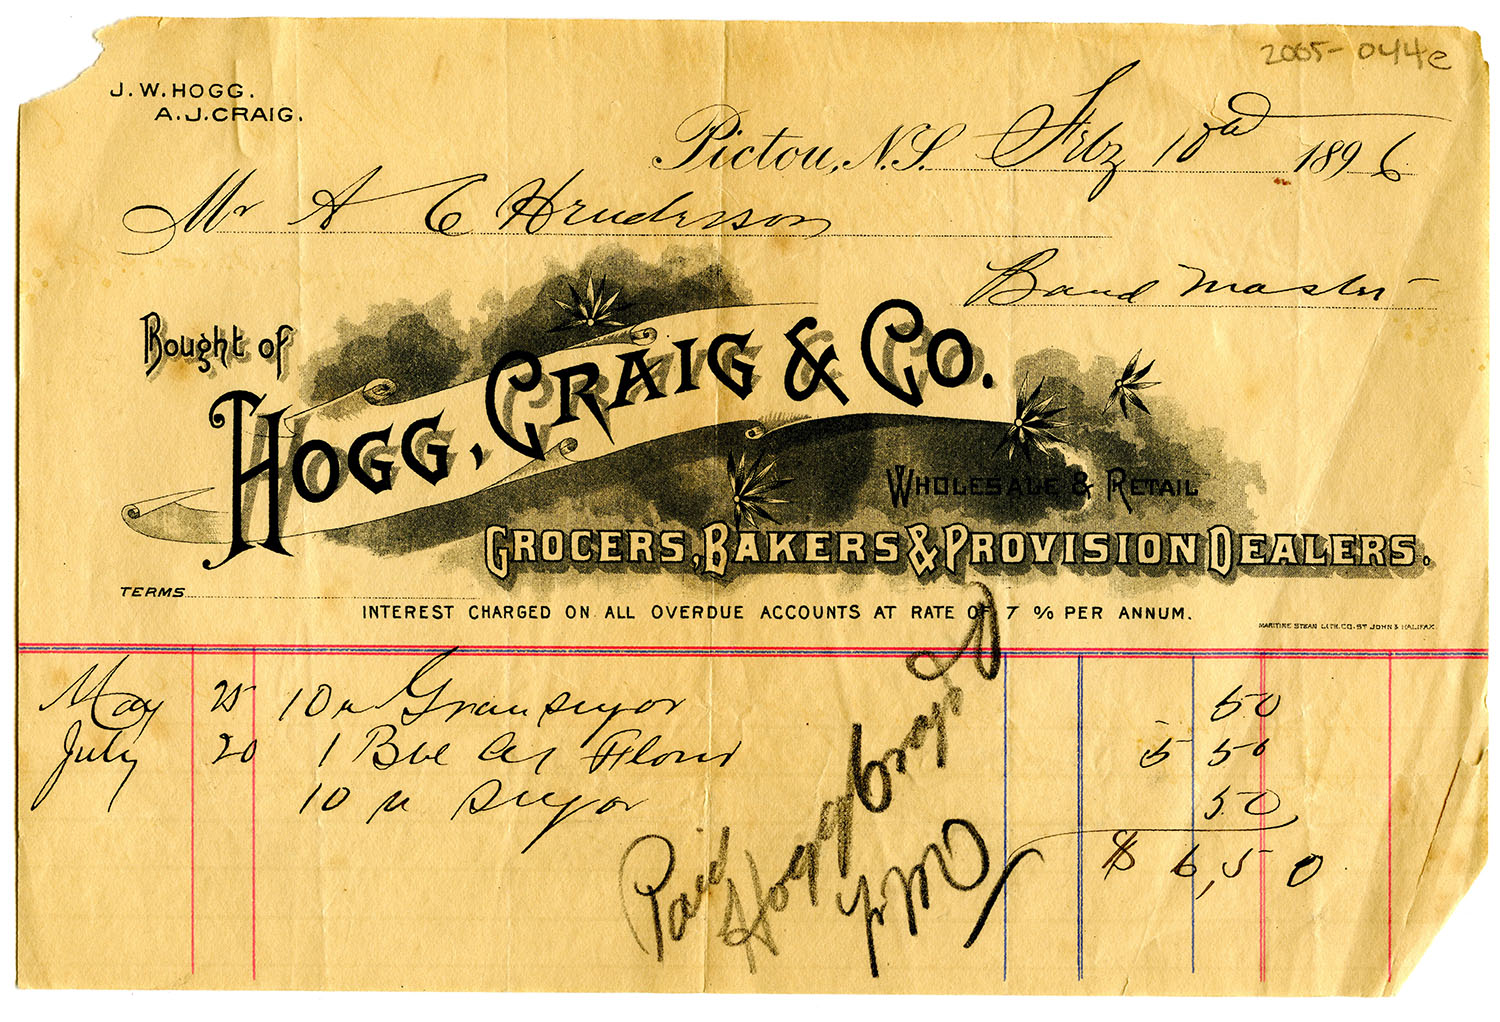 2005-044e
J. W. HOGG.
A. J. CRAIG.
Pictou, N.S. Feby 10th 1896
Mr A C Henderson
Band Master
Bought of
HOGG, CRAIG & CO.
WHOLESALE & RETAIL
GROCERS, BAKERS & PROVISION DEALERS.
TERMS
INTEREST CHARGED ON ALL OVERDUE ACCOUNTS AT RATE OF 7 % PER ANNUM.
MARITIME STEAM LITH. CO. ST JOHN & HALIFAX.
May 25 10 Gran sugar 50
July 20 1 Flour 5 50
10 sugar 50
$ 6,50
Paid
Hogg Craig